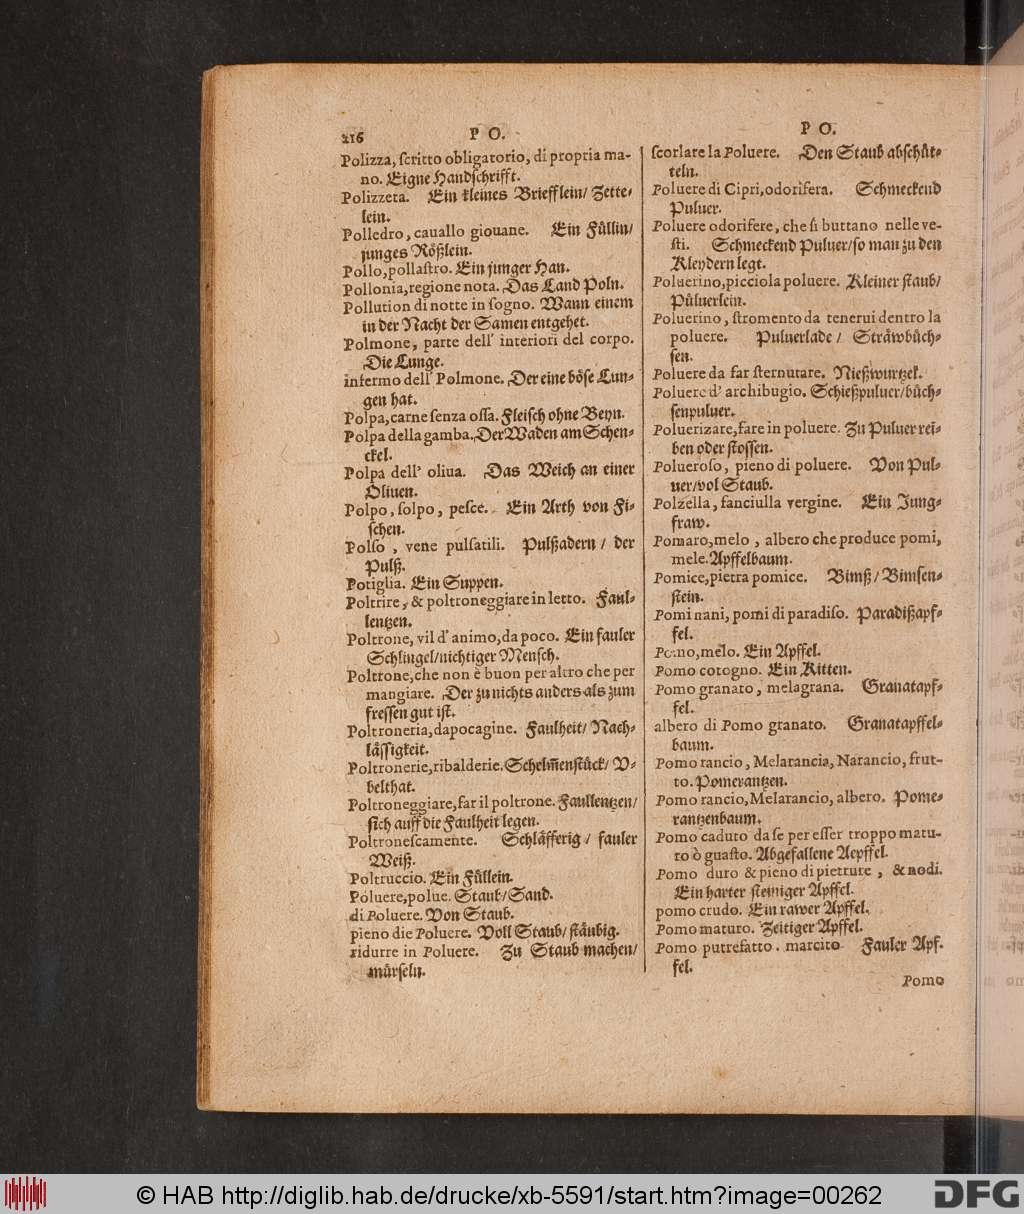 216
P O.
P O.
Polizza, ſcritto obligatorio, di propria ma-
no. Eigne Handſchrifft.
Polizzeta. Ein kleines Briefflein/ Zette-
lein.
Polledro, cauallo giouane. Ein Füllin/
junges Rößlein.
Pollo, pollaſtro. Ein junger Han.
Pollonia, regione nota. Das Land Poln.
Pollution di notte in ſogno. Wann einem
in der Nacht der Samen entgehet.
Polmone, parte dell' interiori del corpo.
Die Lunge.
infermo dell' Polmone. Der eine böſe Lun-
gen hat.
Polpa, carne ſenza oſſa. Fleiſch ohne Beyn.
Polpa della gamba. Der Waden am Schen-
ckel.
Polpa dell' oliua. Das Weich an einer
Oliuen.
Polpo, ſolpo, peſce. Ein Arth von Fi-
ſchen.
Polſo, vene pulſatili. Pulßadern/ der
Pulß.
Potiglia. Ein Suppen.
Poltrire, & poltroneggiare in letto. Faul-
lentzen.
Poltrone, vil d' animo, da poco. Ein fauler
Schlingel/ nichtiger Menſch.
Poltrone, che non è buon per altro che per
mangiare. Der zu nichts anders als zum
freſſen gut iſt.
Poltroneria, dapocagine. Faulheit/ Nach-
läſſigkeit.
Poltronerie, ribalderie. Schelm̃enſtück/ V-
belthat.
Poltroneggiare, far il poltrone. Faullentzen/
ſich auff die Faulheit legen.
Poltroneſcamente. Schläfferig/ fauler
Weiß.
Poltruccio. Ein Füllein.
Póluere, polue. Staub/ Sand.
di Poluere. Von Staub.
pieno die Poluere. Voll Staub/ ſtäubig.
ridurre in Poluere. Zu Staub machen/
mürſeln.
ſcorlare la Poluere. Den Staub abſchüt-
teln.
Poluere di Cipri, odorifera. Schmeckend
Puluer.
Poluere odorifere, che ſi buttano nelle ve-
ſti. Schmeckend Puluer/ ſo man zu den
Kleydern legt.
Poluerino, picciola poluere. Kleiner ſtaub/
Püluerlein.
Poluerino, ſtromento da tenerui dentro la
poluere. Puluerlade/ Sträwbüch-
ſen.
Poluere da far ſternutare. Nießwurtzel.
Poluere d' archibugio. Schießpuluer/ büch-
ſenpuluer.
Poluerizare, fare in poluere. Zu Puluer rei-
ben oder ſtoſſen.
Polueroſo, pieno di poluere. Von Pul-
uer/ vol Staub.
Polzella, fanciulla vergine. Ein Jung-
fraw.
Pomaro, melo, albero che produce pomi,
mele. Apffelbaum.
Pomice, pietra pomice. Bimß/ Bimſen-
ſtein.
Pomi nani, pomi di paradiſo. Paradißapf-
fel.
Pomo, melo. Ein Apffel.
Pomo cotogno. Ein Kitten.
Pomo granato, melagrana. Granatapf-
fel.
albero di Pomo granato. Granatapffel-
baum.
Pomo rancio, Melarancia, Narancio, frut-
to. Pomerantzen.
Pomo rancio, Melarancio, albero. Pome-
rantzenbaum.
Pomo caduto da ſe per eſſer troppo matu-
ro ò guaſto. Abgefallene Aepffel.
Pomo duro & pieno di pietrute, & nodi.
Ein harter ſteiniger Apffel.
pomo crudo. Ein rawer Apffel.
Pomo maturo. Zeitiger Apffel.
Pomo putrefatto. marcito Fauler Apf-
fel.
Pomo
© HAB http://diglib.hab.de/drucke/xb-5591/start.htm?image=00262
DFG